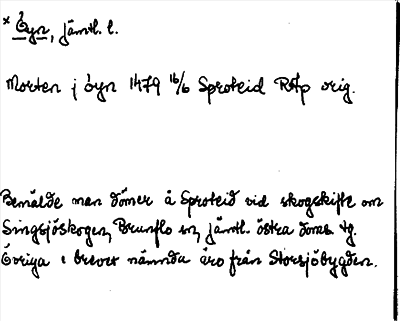 * Óyn, jämtl. l.
Morten j óyn 1479 16/6 Sproteid RAp orig.
Benälde man dömer å Sproteid vid skogskifte om
Singsjöskogen, Brunflo sn, jämtl. östra doms. tg.
Övriga i brevet nämnda äro från Storsjöbygden.